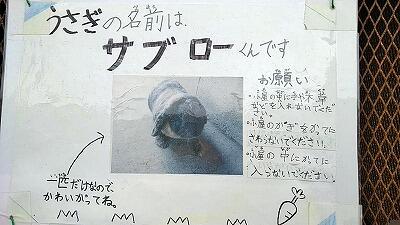 うさぎの名前は
サブローくんです
お願い
・小屋の中に木や草
などを入れないでくだ
さい。
・小屋のかぎをかってに
さわらないでください。
・小屋の中にかってに
入らないでください
一匹だけなので
かわいがってね。